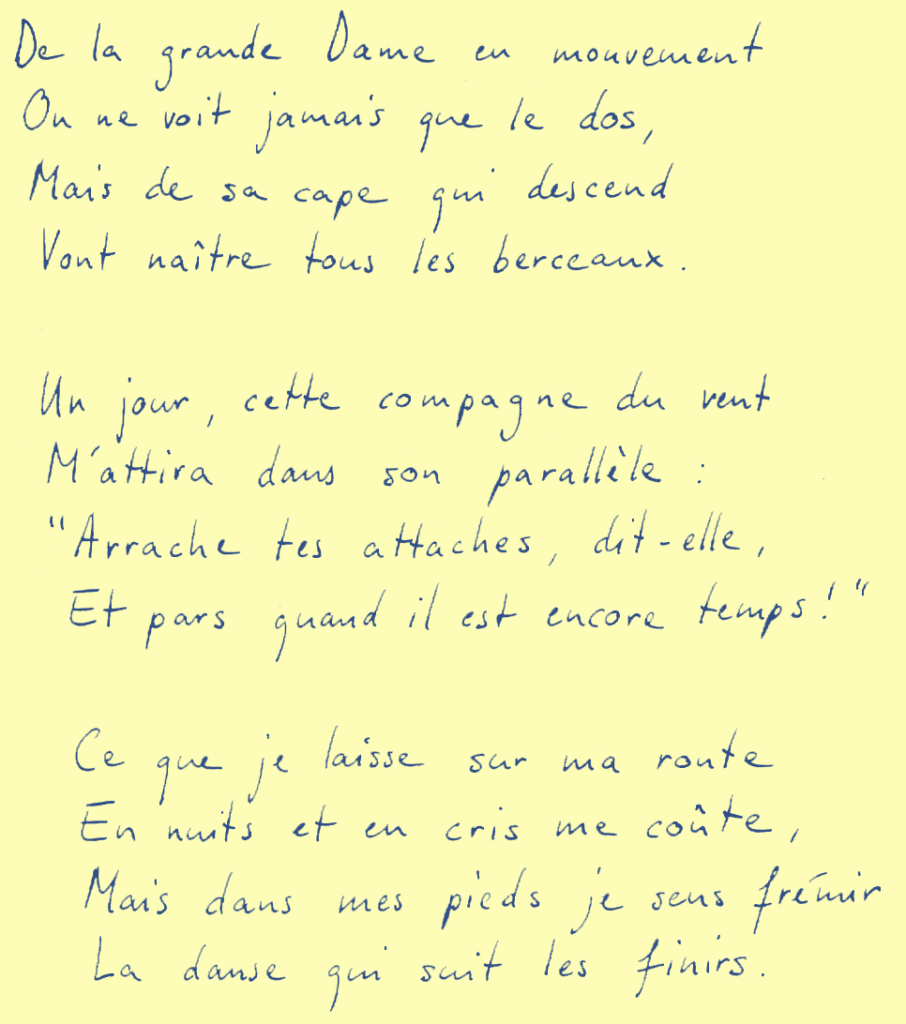 De la grande Dame en mouvement
On ne voit jamais que le dos,
Mais de sa cape qui descend
Vont naître tous les berceaux.
Un jour, cette compagne du vent
M'attira dans son parallèle :
"Arrache tes attaches, dit-elle,
Et pars quand il est encore temps!"
Ce que je laisse sur ma route
En nuits et en cris me coûte,
Mais dans mes pieds je sens frémir
La danse qui suit les finirs.